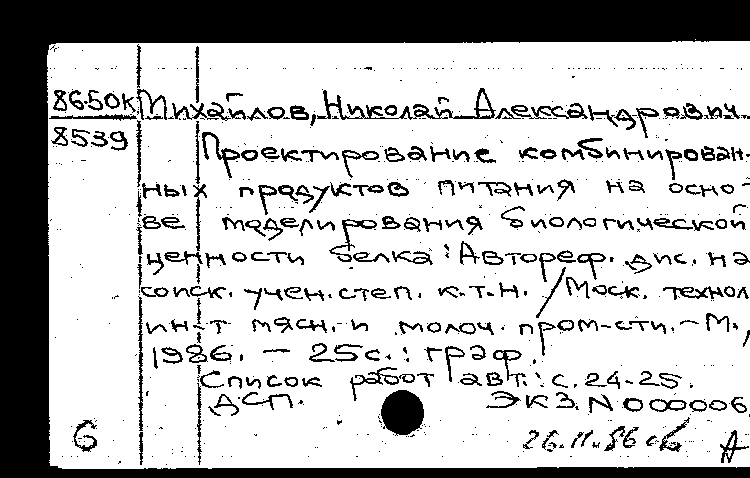 8650К Михайлов, Николай Александрович.
8539
Проектирование комбинирован-
ных продуктов питания на осно-
ве моделирования биологической
ценности белка: Автореф. дис. на
соиск. учен. степ. к.т.н. / Моск. технол
ин-т мясн. и молоч. пром-сти. - М.,
1986. - 25с.: граф.
Список работ авт.: с. 24-25.
ДСП. ЭКЗ. N 000006
6 26.11.86 А